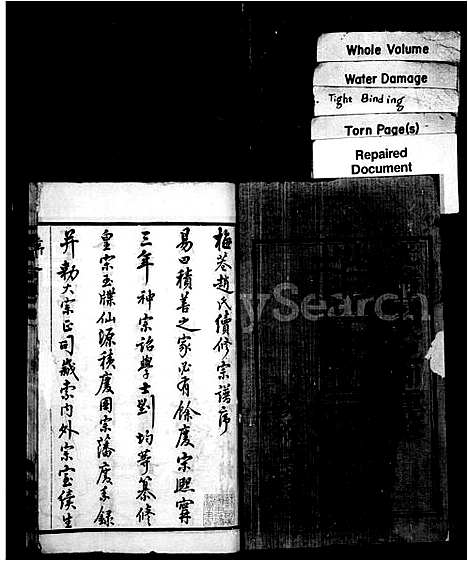 Whole Volume
Water Damage
Tight Binding
Torn Page(s)
Repaired
Document
梅巷趙氏續修宗譜序
易曰積善之家必有餘慶宗熙寧
三年神宗詔學士劉均等纂修
皇宗玉牒仙源積慶圖宗藩慶系錄
并勅大宗正司歲索內外宗室續生
ySearch